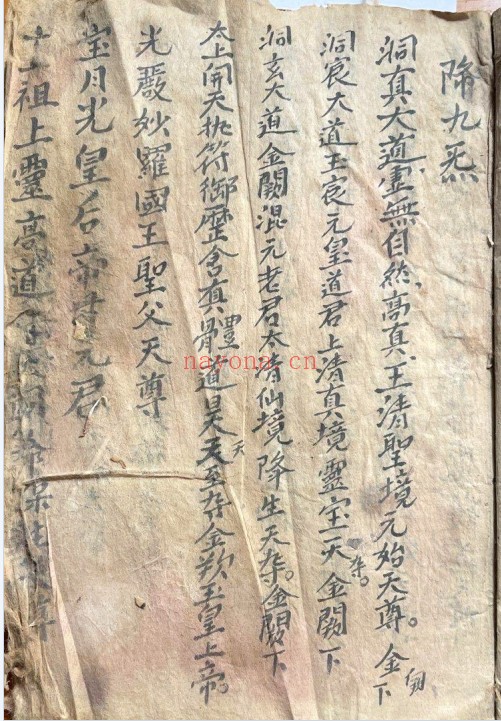 降九炁
洞真大道虛無自然高真玉清聖境元始天尊。金闕下
洞宸大道玉宸元皇道君上清真境靈宝天尊。金闕下
洞玄大道金闕混元老君太清仙境降生天尊。金闕下
太上開天执符御歷含真體道昊天至尊金玊玉皇上帝。
光嚴妙羅國王聖父天尊
宝月光皇后帝君元君
十七祖上靈高道
nayona.cn